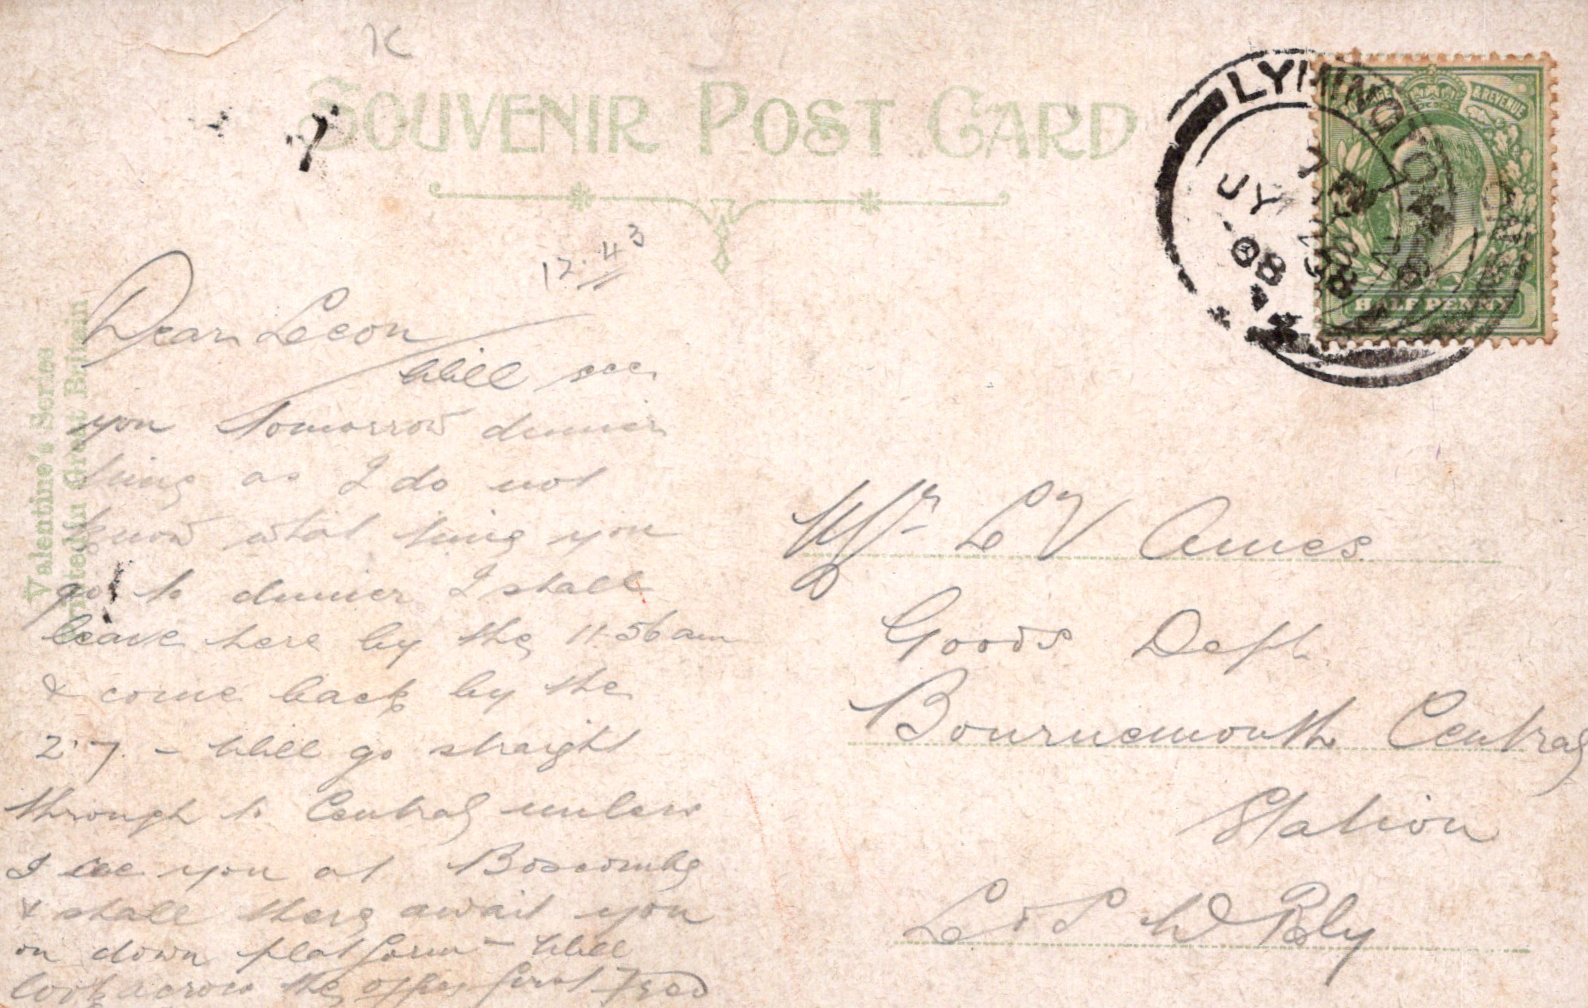 K
SOUVENIR POST CARD
LYMINGTON
JY
08
& REVENUE
HALF PENNY
12.43
Valentine's Series
Great Britain
Dear Leeon
Will see
you tomorrow dinner
time as I do not
know what time you
go to dinner I shall
leave here by the 11.56 am
& come back by the
2.7. - Will go straight
through to Central unless
I see you at Boscombe
& shall there await you
on down platform - Will
look across the office first Fred
Mr. L V Ames
Goods Dept.
Bournemouth Central
Station
L & S W Rly